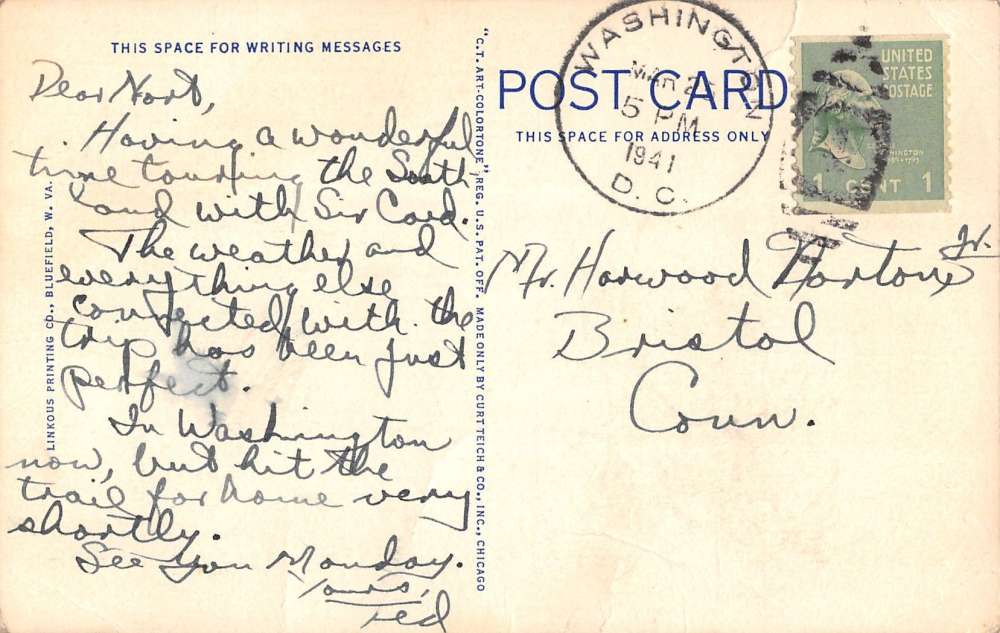 THIS SPACE FOR WRITING MESSAGES
Dear Nort,
Having a wonderful
time touring the South
land with Sir Card.
The weather and
everything else
connected with the
trip has been just
perfect.
In Washington
now, but hit the
trail for home very
shortly.
See you Monday.
Yours,
Ted
LINKOUS PRINTING CO., BLUEFIELD, W. VA.
"C.T. ART-COLORTONE" REG. U.S. PAT. OFF. MADE ONLY BY CURT TEICH & CO., INC., CHICAGO
POST CARD
THIS SPACE FOR ADDRESS ONLY
WASHINGTON
MAR 2
5 PM
1941
D. C.
UNITED
STATES
POSTAGE
WASHINGTON
1 CENT 1
Mr. Harwood Norton Jr.
Bristol
Conn.